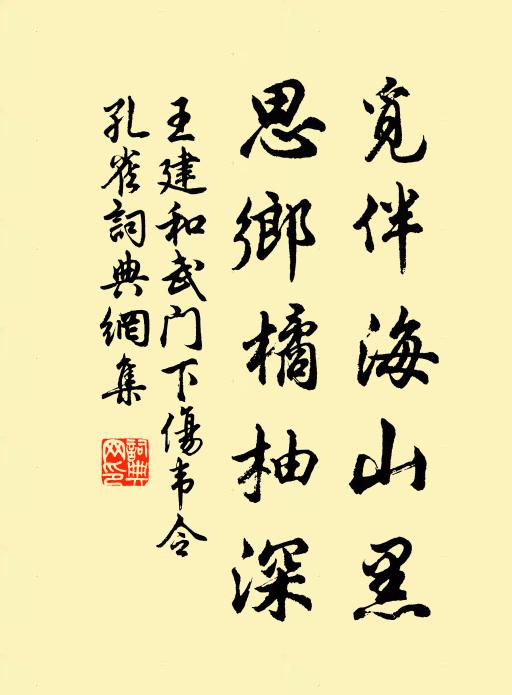 覓伴海山黑
思鄉橘柚深
王建和武门下傷韦令
孔雀詞典網集
詞典網印